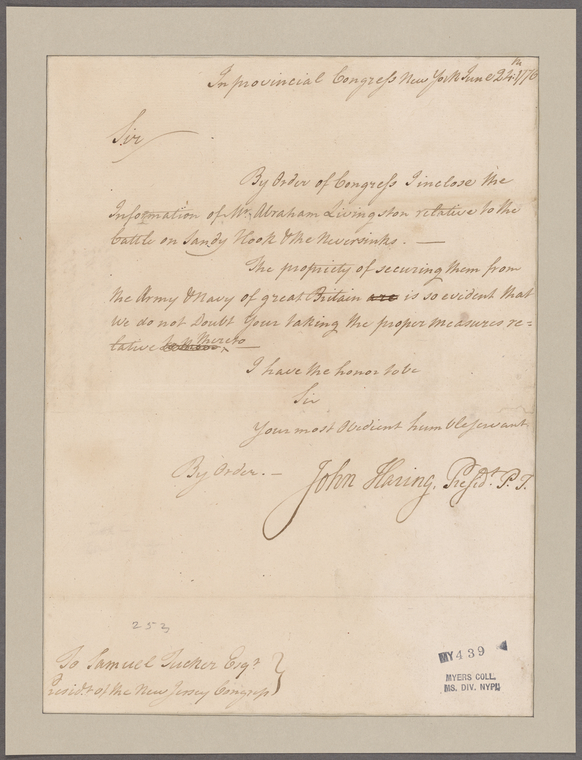 In provincial Congress New York June 24th 1776
Sir
By Order of Congress I inclose the
Information of Mr. Abraham Livingston relative to the
Cattle on Sandy Hook & the Neversinks. —
The propriety of securing them from
the Army & Navy of great Britain are is so evident that
we do not Doubt Your taking the proper measures re=
lative thereto
I have the honor to be
Sir
Your most Obedient humble servant
By Order. — John Haring, Presidt. P. T.
253
To Samuel Tucker Esqr.
Presidt. of the New Jersey Congress
MY 439
MYERS COLL.
MS. DIV. NYPL